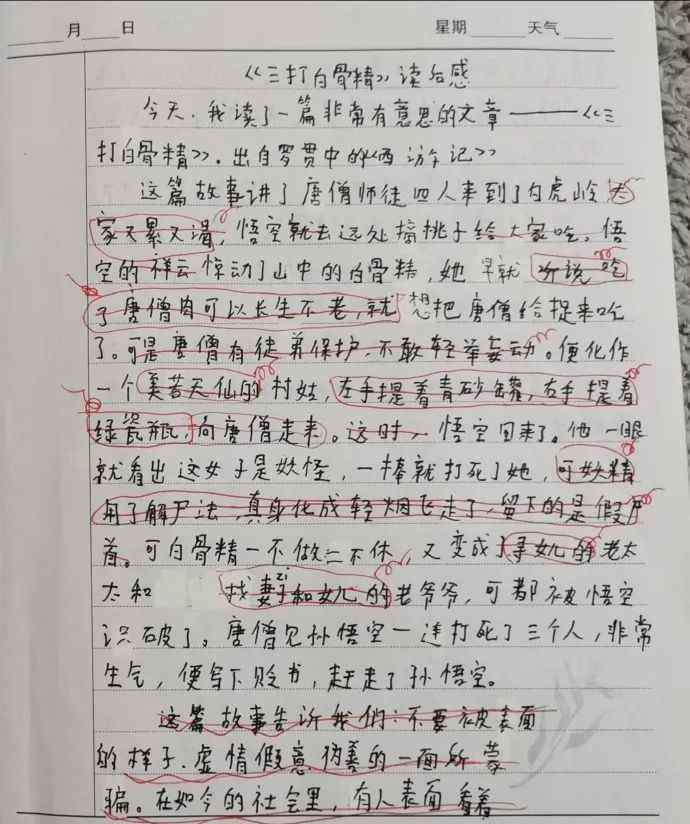 月 日 星期 天气
《三打白骨精》读后感
今天，我读了一篇非常有意思的文章——《三
打白骨精》。出自罗贯中的《西游记》
这篇故事讲了唐僧师徒四人来到了白虎岭，大
家又累又渴，悟空就去远处摘桃子给大家吃。悟
空的祥云惊动了山中的白骨精，她早就听说吃
了唐僧肉可以长生不老，就想把唐僧给捉来吃
了。可是唐僧有徒弟保护，不敢轻举妄动。便化作
一个美若天仙的村姑，左手提着青砂罐，右手提着
绿瓷瓶，向唐僧走来。这时，悟空回来了。他一眼
就看出这女子是妖怪，一棒就打死了她，可妖精
用了解尸法，真身化成轻烟飞走了，留下的是假尸
首。可白骨精一不做二不休，又变成了寻女儿的老太
太和 找妻子和女儿的老爷爷，可都被悟空
识破了。唐僧见孙悟空一连打死了三个人，非常
生气，便写下贬书，赶走了孙悟空。
这篇故事告诉我们：不要被表面
的样子、虚情假意，伪善的一面所蒙
骗。在如今的社会里，有人表面看着